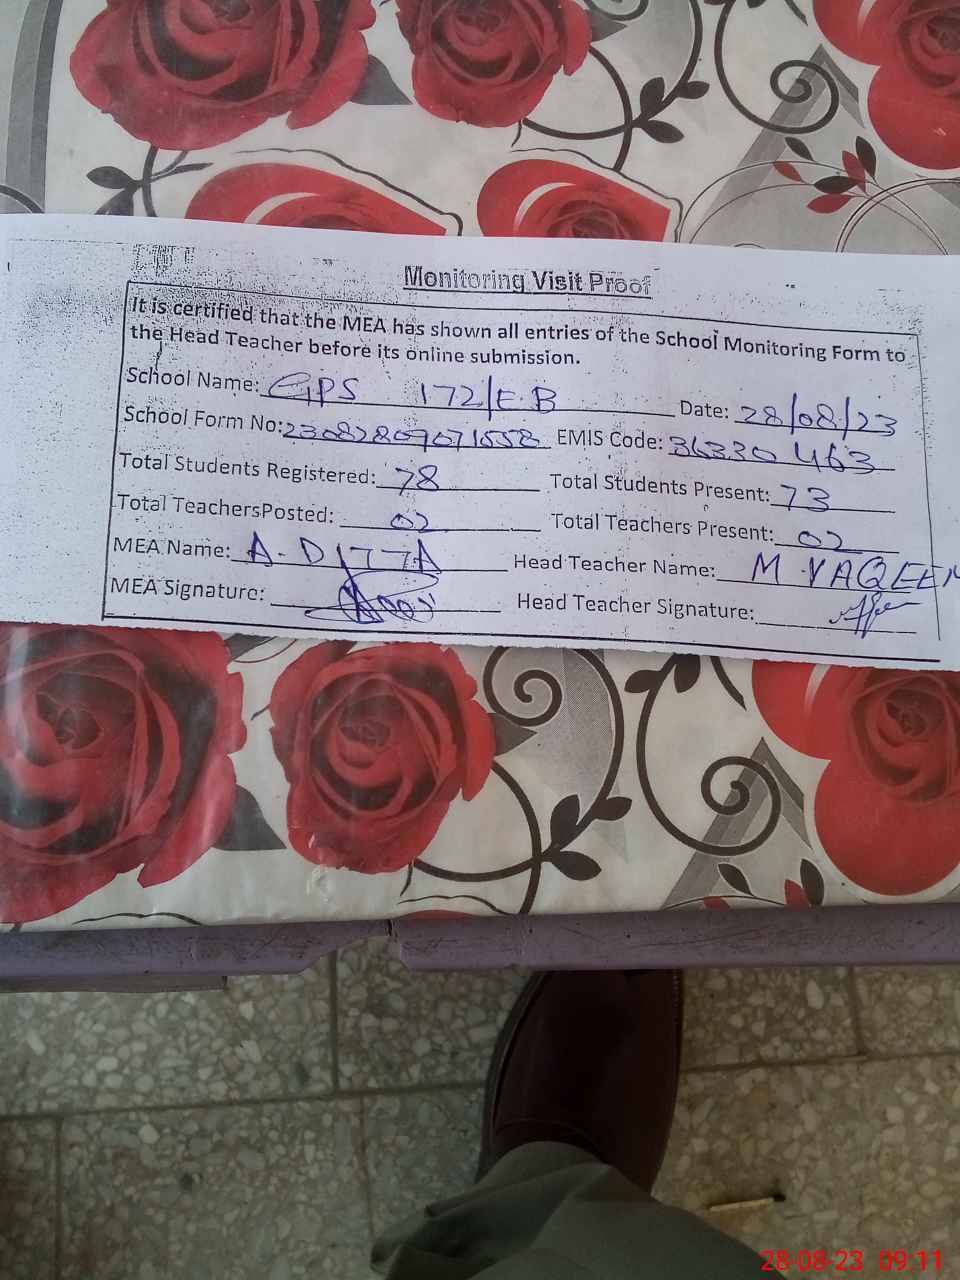 Monitoring Visit Proof
It is certified that the MEA has shown all entries of the School Monitoring Form to
the Head Teacher before its online submission.
School Name: GPS 172/EB Date: 28/08/23
School Form No: EMIS Code: 36330463
Total Students Registered: 78 Total Students Present: 73
Total TeachersPosted: 02 Total Teachers Present: 02
MEA Name: A-DITTA Head Teacher Name: M VAQEEM
MEA Signature: Head Teacher Signature:
28-08-23 09:11